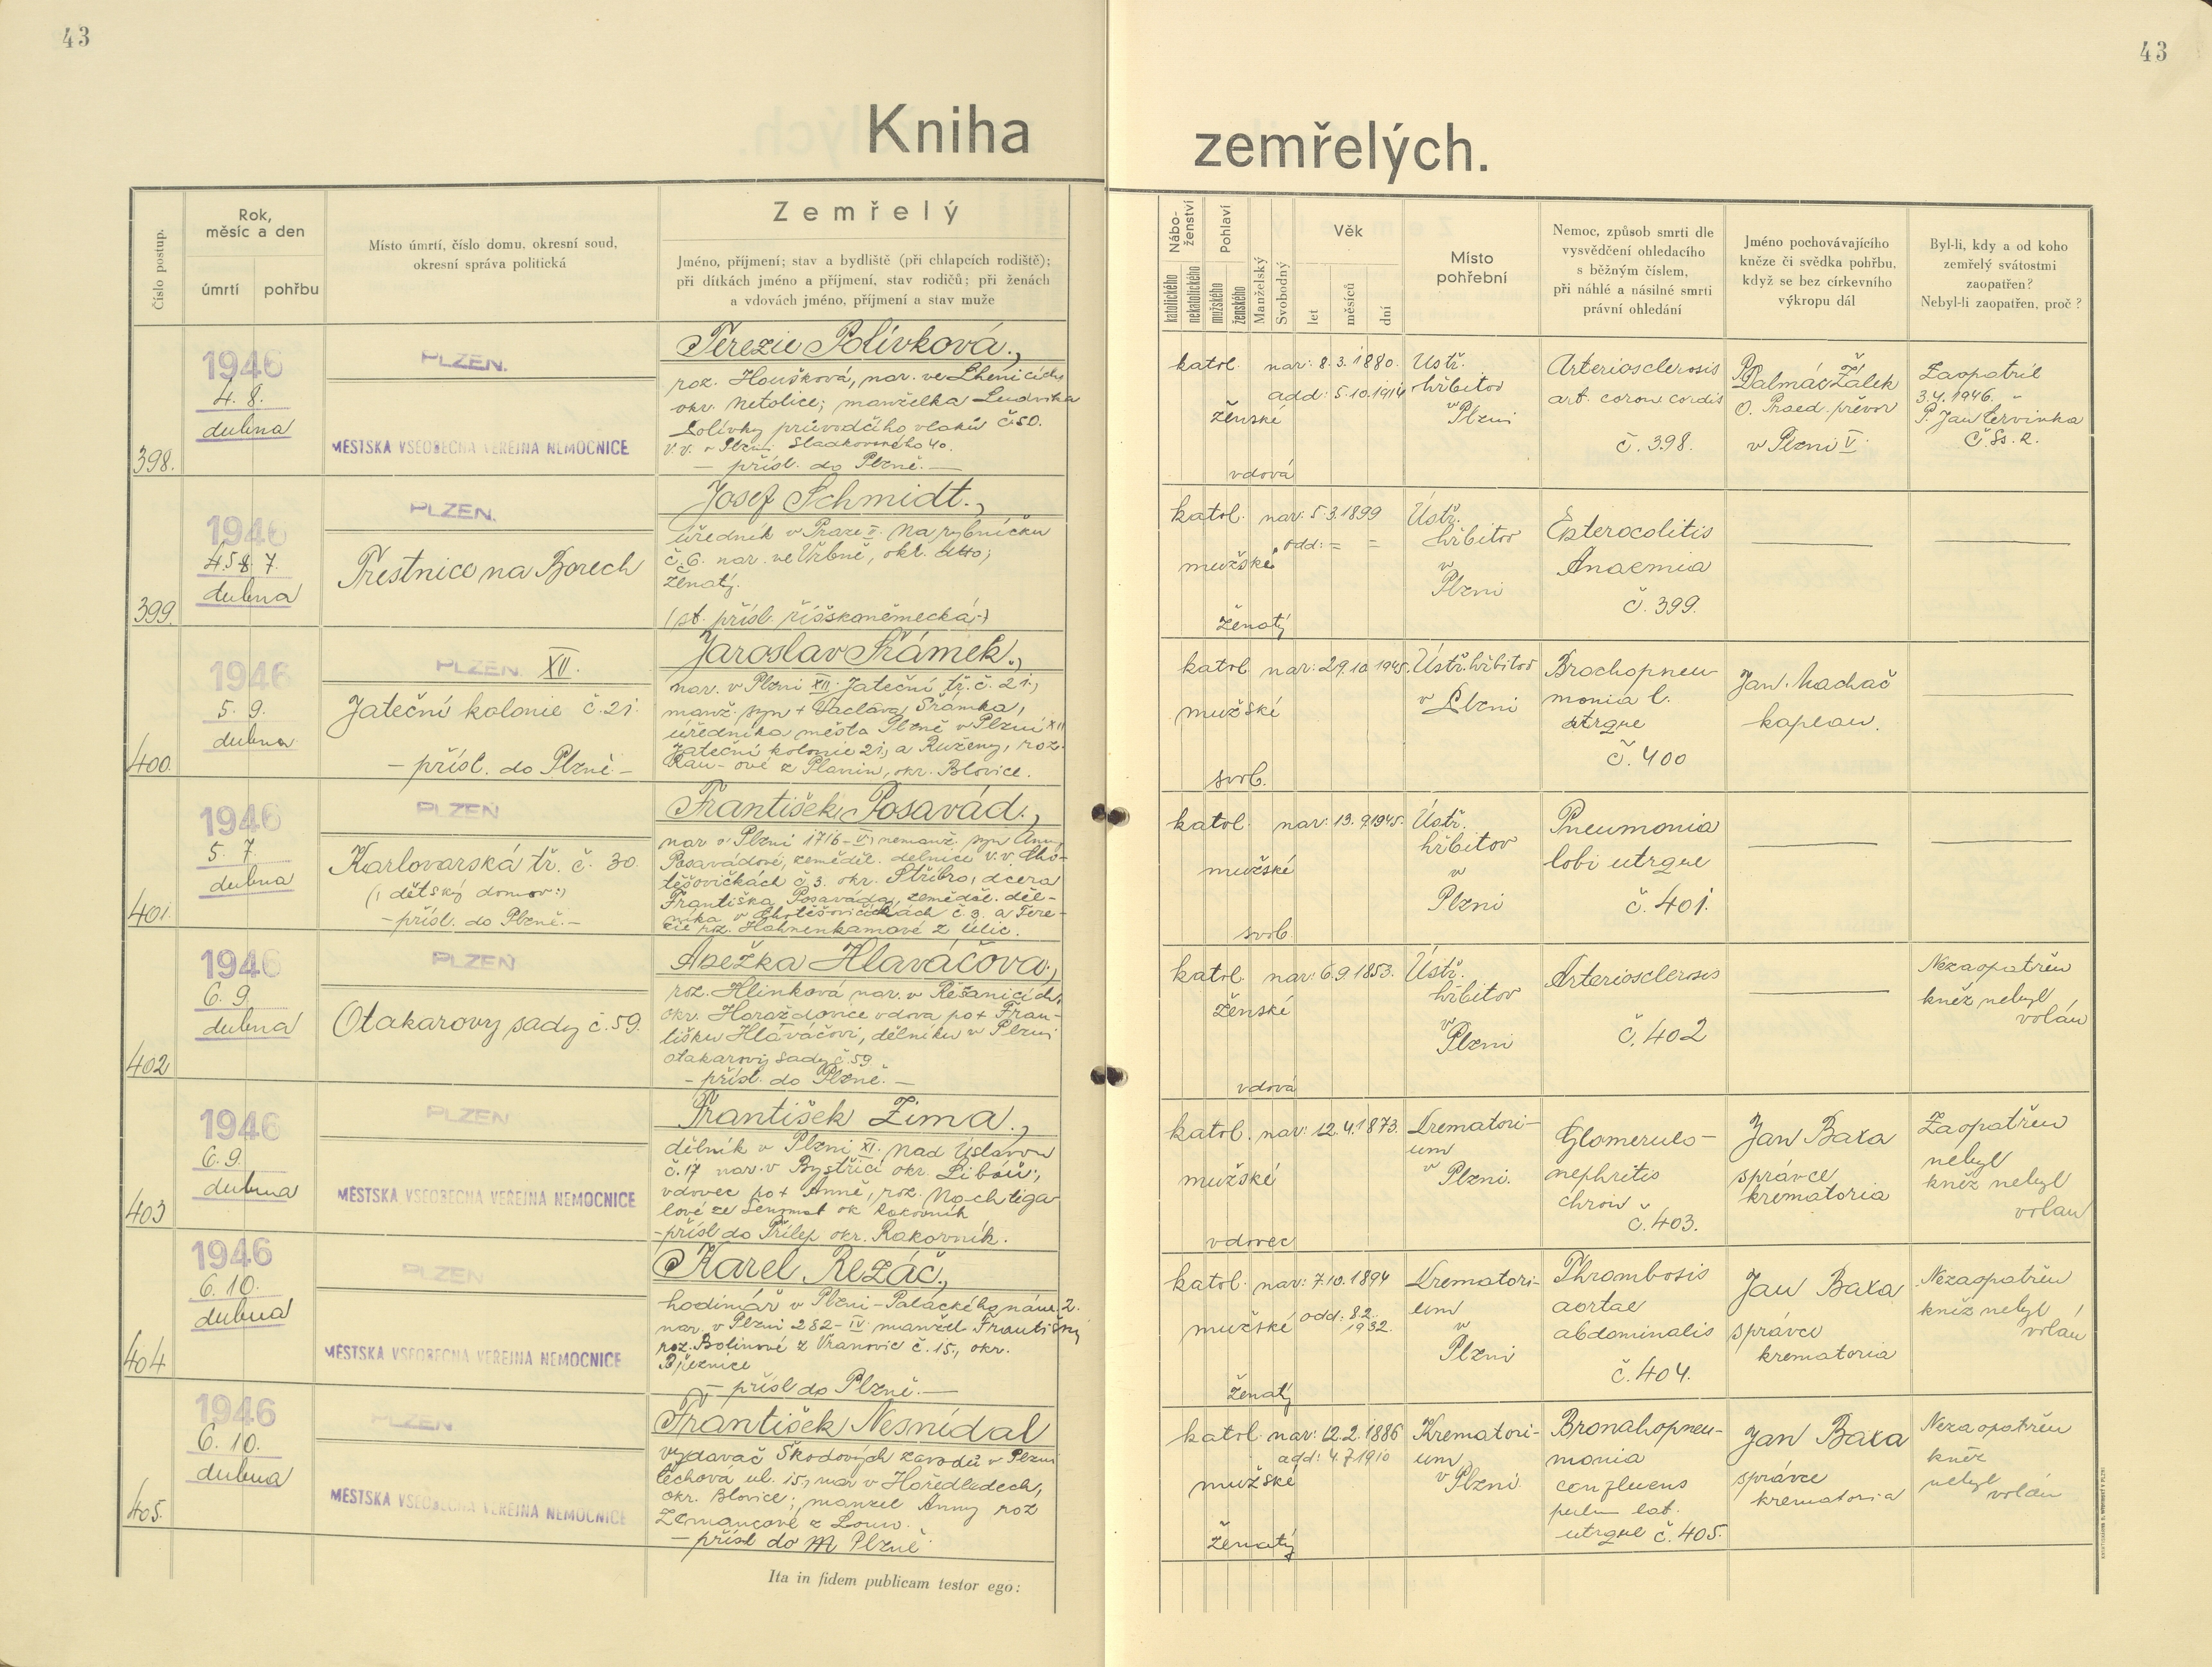 43
43
Kniha
zemřelých.
Číslo postup.
Rok,
měsíc a den
úmrtí
pohřbu
Místo úmrtí, číslo domu, okresní soud,
okresní správa politická
Zemřelý
Jméno, příjmení; stav a bydliště (při chlapcích rodiště);
při dítkách jméno a příjmení, stav rodičů; při ženách
a vdovách jméno, příjmení a stav muže
Nábo-
ženství
katolického
nekatolického
Pohlaví
mužského
ženského
Manželský
Svobodný
Věk
let
měsíců
dní
Místo
pohřební
Nemoc, způsob smrti dle
vysvědčení ohledacího
s běžným číslem,
při náhlé a násilné smrti
právní ohledání
Jméno pochovávajícího
kněze či svědka pohřbu,
když se bez církevního
výkropu dál
Byl-li, kdy a od koho
zemřelý svátostmi
zaopatřen?
Nebyl-li zaopatřen, proč?
398.
1946
4. 8.
dubna
PLZEŇ.
MĚSTSKÁ VŠEOBECNÁ VEŘEJNÁ NEMOCNICE
Terezie Polívková.,
roz. Houšková, nar. ve Lhenicích
okr. Netolice; manželka Ludvíka
Polívky průvodčího vlaků ČSD.
v.v. v Plzni Sladkovského 40.
— přísl. do Plzně. —
katol.
ženské
vdová
nar: 8. 3. 1880.
odd: 5. 10. 1914
Ústř.
hřbitov
v
Plzni
Arteriosclerosis
art. coron cordis
č. 398.
P. Dalmác Žálek
O. Praed. převor
v Plzni V.
Zaopatřil
3.4. 1946.
P. Jan Červinka
Č. Ss. R.
399.
1946
4.5 8. 7.
dubna
PLZEŇ.
Trestnice na Borech
Josef Schmidt.,
úředník v Praze II. Na rybníčku
č. 6. nar. ve Vrbně, okr. ;
ženatý.
(st. přísl. říšskoněmecká.)
katol.
mužské
ženatý
nar: 5. 3. 1899
odd: = =
Ústř.
hřbitov
v
Plzni
Enterocolitis
Anaemia
č. 399.
400.
1946
5. 9.
dubna
PLZEŇ XII.
Jateční kolonie č. 21.
— přísl. do Plzně —
Jaroslav Šrámek.,
nar. v Plzni XII. Jateční tř. č. 21.,
manž. syn + Václava Šrámka,
úředníka města Plzně v Plzni XII
Jateční kolonie 21, a Růženy, roz.
Rau-ové z Planin, okr. Blovice.
katol
mužské
svob.
nar: 29. 10 1945.
Ústř. hřbitov
v Plzni
Brochopneu
monia l.
utrque
č. 400
Jan Machač
kaplan.
401.
1946
5. 7.
dubna
PLZEŇ
Karlovarská tř. č. 30.
(: dětský domov :)
— přísl. do Plzně. —
František Posavád.,
nar v Plzni 1716-V, nemanž. syn Anny
Posavádové, zeměděl. dělnice v.v. Cho-
těšovičkách č 3. okr. Stříbro, dcera
Františka Posaváda, zeměděl. děl-
níka v Chotěšovičkách č 3. a Tere-
zie roz. Hahnenkamové z Úlic.
katol.
mužské
svob.
nar: 13. 9 1945.
Ústř.
hřbitov
v
Plzni
Pneumonia
lobi utrque
č. 401.
402
1946
6. 9.
dubna
PLZEŇ
Otakarovy sady č. 59.
Anežka Hlaváčová.,
roz. Hlinková nar. v Řesanicích,
okr. Horažďovice vdova po + Fran-
tišku Hlaváčovi, dělníku v Plzni
Otakarovy sady č. 59
— přísl. do Plzně. —
katol.
ženské
vdová
nar: 6. 9. 1853.
Ústř.
hřbitov
v
Plzni
Arteriosclerosis
č. 402
Nezaopatřen
kněz nebyl
volán
403
1946
6. 9.
dubna
PLZEŇ
MĚSTSKÁ VŠEOBECNÁ VEŘEJNÁ NEMOCNICE
František Zima.,
dělník v Plzni XI. Nad Úslavou
č. 17 nar. v Bystřici okr. Libáň,
vdovec po + Anně, roz. Nachtiga
lové ze Senomat ok Rakovník
— přísl do Přílep okr. Rakovník.
katol.
mužské
vdovec
nar: 12. 4. 1873.
Krematori-
um
v Plzni.
Glomerulo-
nephritis
chron
č. 403.
Jan Baxa
správce
krematoria
Zaopatřen
nebyl
kněz nebyl
volán
404
1946
6. 10.
dubna
PLZEŇ
MĚSTSKÁ VŠEOBECNÁ VEŘEJNÁ NEMOCNICE
Karel Řezáč.,
hodinář v Plzni - Palackého nám. 2.
nar. v Plzni 282-IV. manžel Františky
roz. Bolinové z Vranovic č. 15., okr.
Březnice
— přísl do Plzně. —
katol.
mužské
ženatý
nar: 7. 10. 1894
odd: 8. 2.
1932.
Krematori-
um
v
Plzni
Thrombosis
aortae
abdominalis
č. 404.
Jan Baxa
správce
krematoria
Nezaopatřen
kněz nebyl
volán
405.
1946
6. 10.
dubna
PLZEŇ
MĚSTSKÁ VŠEOBECNÁ VEŘEJNÁ NEMOCNICE
František Nesnídal
vydavač Škodových závodů v Plzni
Čechová ul. 15, nar v Hořehledech,
okr. Blovice; manžel Anny roz
Zemancové z Loun.
— přísl do Plzně.
katol.
mužské
ženatý
nar: 12. 2. 1886
odd: 4. 7. 1910
Krematori-
um
v Plzni.
Bronchopneu-
monia
confluens
pulm lat.
utrque č. 405.
Jan Baxa
správce
krematoria
Nezaopatřen
kněz
nebyl
volán
Ita in fidem publicam testor ego: